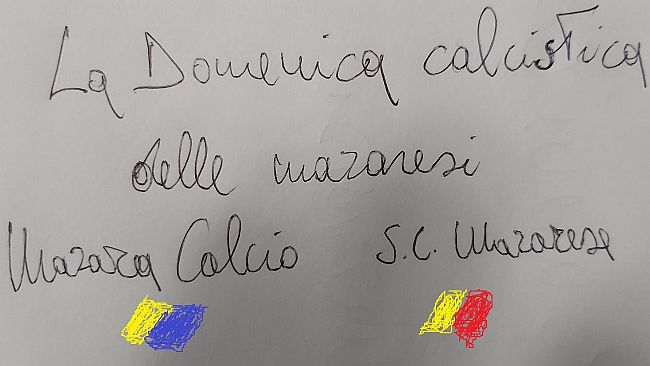 La Domenica calcistica
delle mazaresi
Mazara Calcio S.C. Mazarese